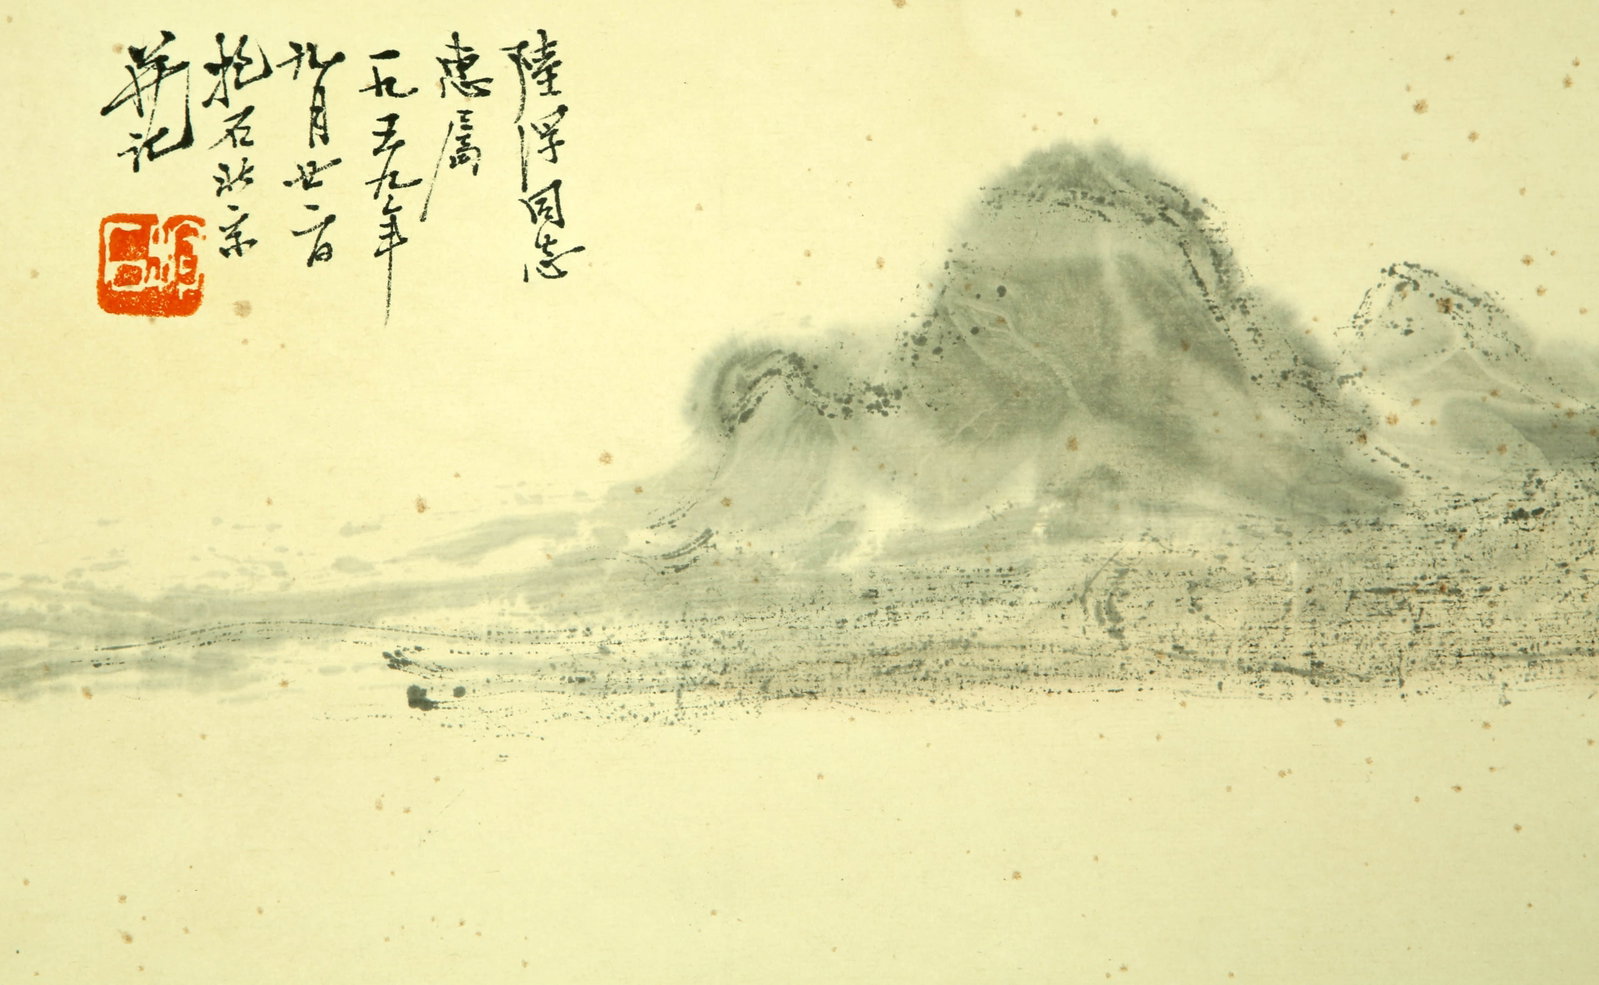 陸浮同志
惠属
一九五九年
九月廿二日
抱石北京
并記